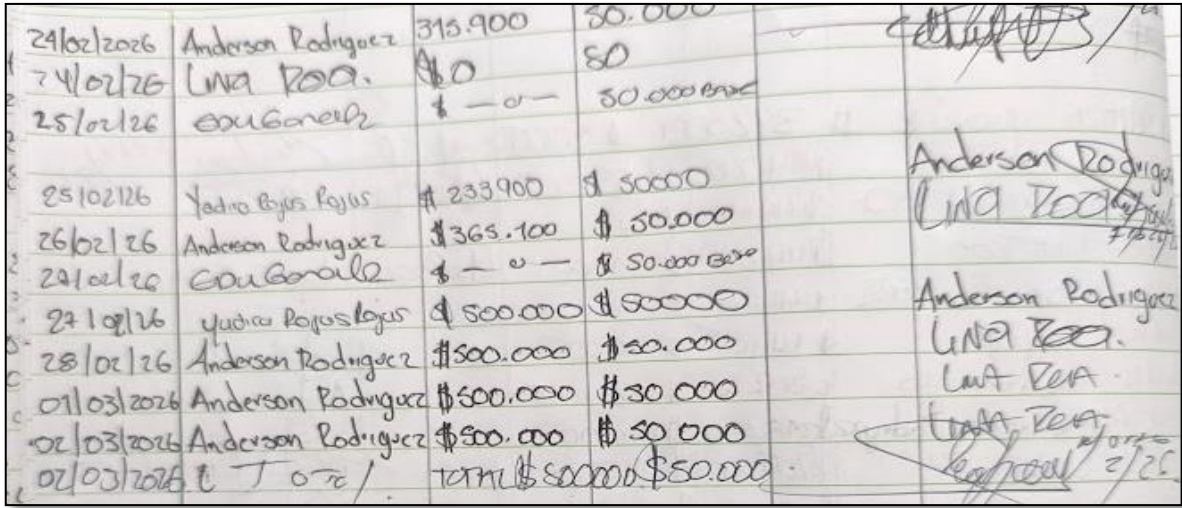 24/02/2026 Anderson Rodriguez 315.900 50.000
24/02/26 Lina Roa. $0 50
25/02/26 $ — 0 — 50.000 Base
Anderson Rodrigu
25/02/26 Yadira Rojas Rojas $ 233900 $ 50000
Lina Roa
26/02/26 Anderson Rodriguez $365.100 $ 50.000
$ — 0 — $ 50.000 Base
Anderson Rodriguez
27/02/26 Yadira Rojas Rojas $ 500.000 $ 50000
Lina Roa.
28/02/26 Anderson Rodriguez $500.000 $50.000
01/03/2026 Anderson Rodriguez $500.000 $50 000
02/03/2026 Anderson Rodriguez $500.000 $ 50 000
02/03/2026 TOTAL $500000 $50.000